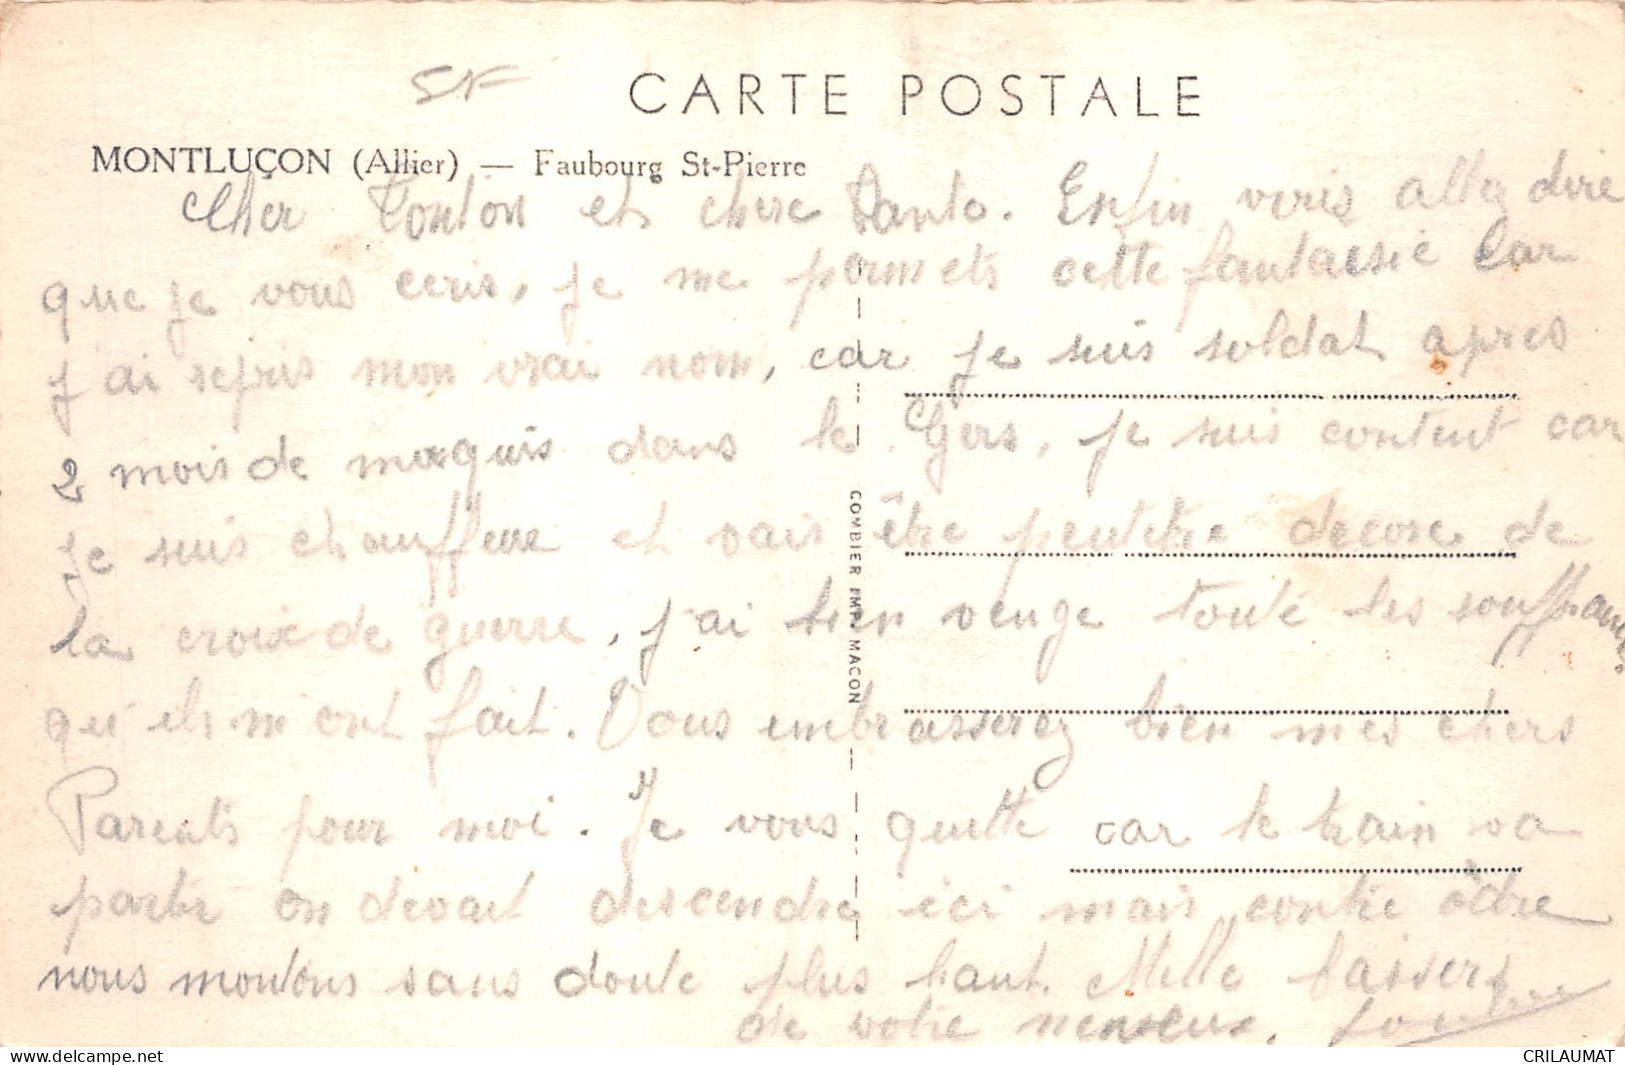 5F
CARTE POSTALE
MONTLUÇON (Allier) — Faubourg St-Pierre
Cher Tonton et chere Tanto. Enfin vous allez dire
que je vous ecris, je me permets cette fantaisie Car
j'ai repris mon vrai nom, car je suis soldat apres
2 mois de maquis dans le Gers, je suis content car
je suis chauffeur et vais être peutetre decore de
la croix de guerre, j'ai bien venge toute les souffrances
qu'ils m'ont fait. Vous embrasserez bien mes chers
Parents pour moi. Je vous quitte car le train va
partir on devait descendre ici mais contre ordre
nous montons sans doute plus haut. Mille baisers
de votre neveux.
COMBIER IMP. MACON
CRILAUMAT
delcampe.net